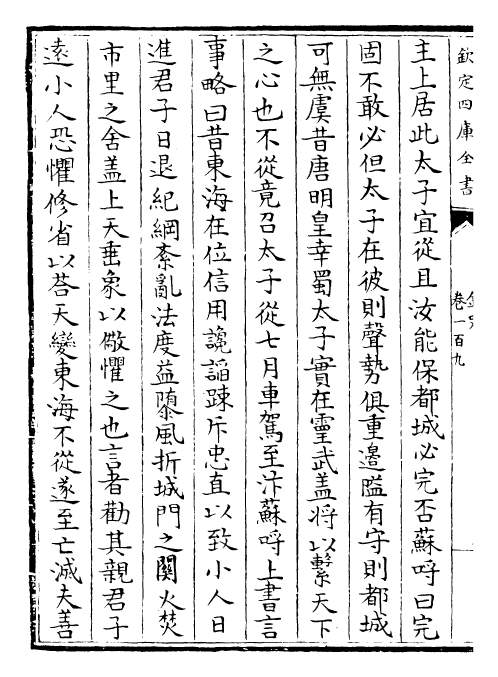 欽定四庫全書
卷一百九
主上居此太子宜從且汝能保都城必完否蘇呼曰完
固不敢必但太子在彼則聲勢俱重邉隘有守則都城
可無虞昔唐明皇幸蜀太子實在靈武盖将以繫天下
之心也不從竟召太子從七月車駕至汴蘇呼上書言
事略曰昔東海在位信用讒謟踈斥忠直以致小人日
進君子日退紀綱紊亂法度益隳風折城門之關火焚
市里之舍盖上天垂象以儆懼之也言者勸其親君子
逺小人恐懼修省以荅天變東海不從遂至亡滅夫善